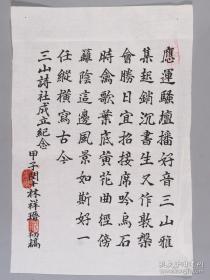 應運騷壇播好音三山雅
集起銷沉書生又作敦槃
會勝日宜招接席吟烏石
時禽歌葉底花曲徑傍
蘿陰這邊風景如斯好一
任縱橫寫古今
三山詩社成立紀念
甲子閏十林祥初稿